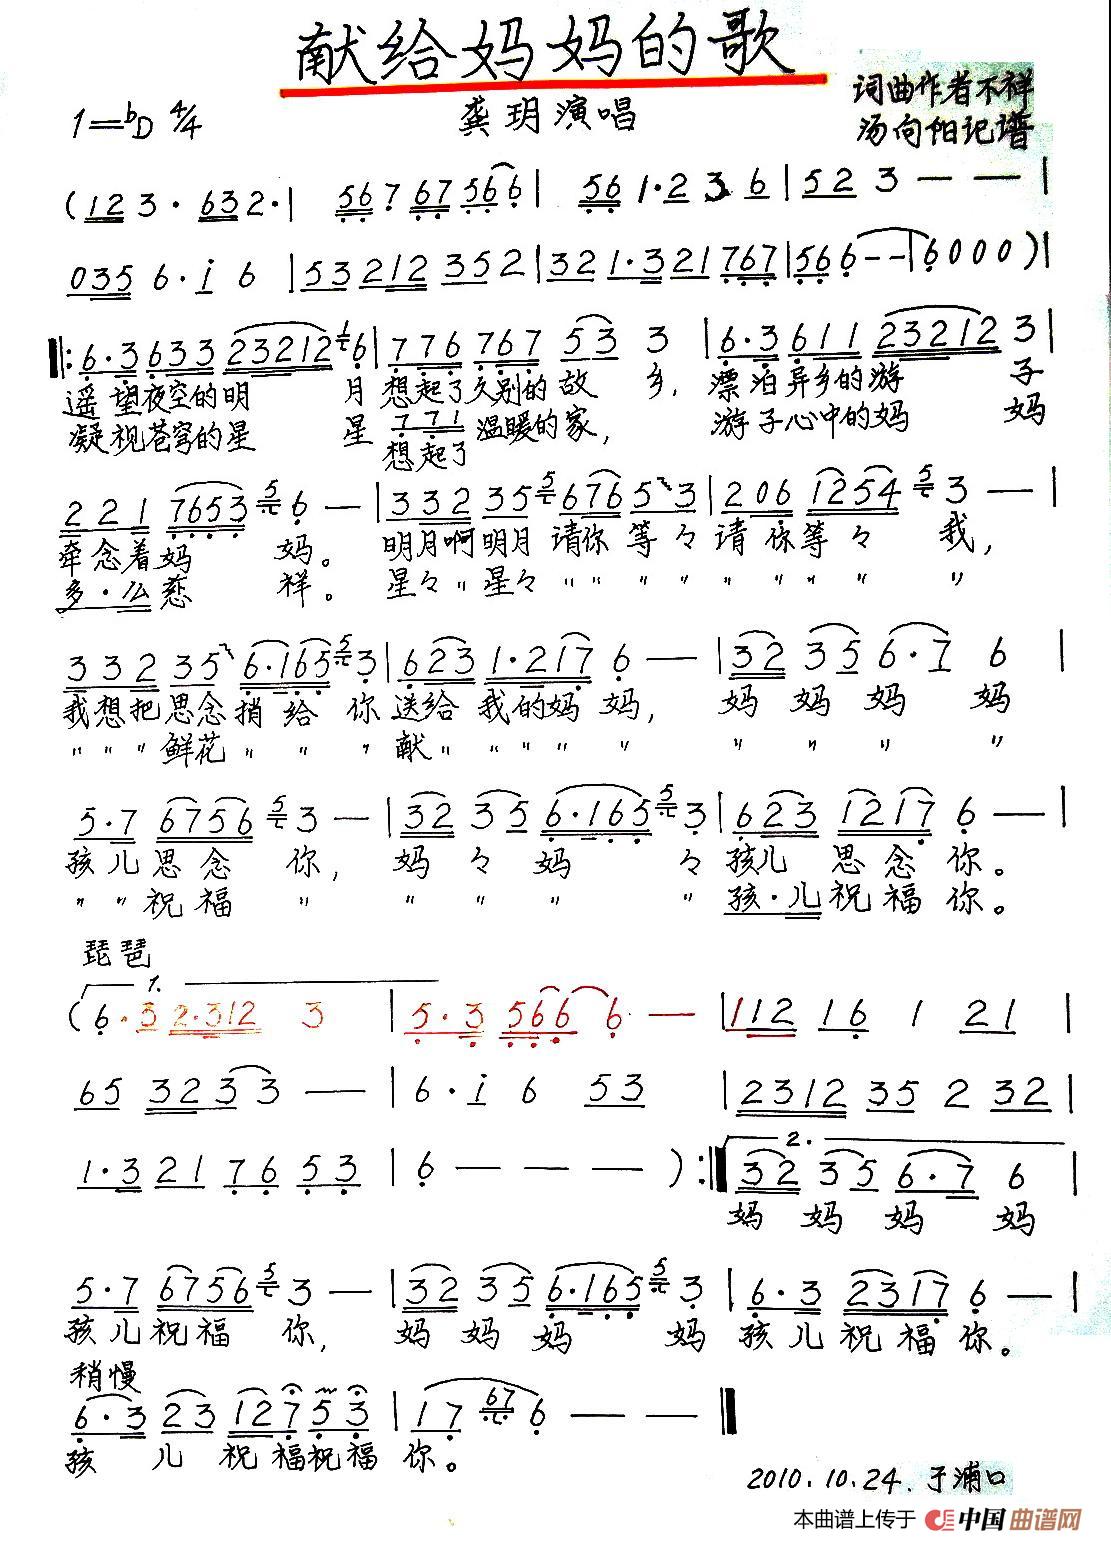 献给妈妈的歌
1=bD 4/4
龚玥演唱
词曲作者不祥
汤向阳记谱
(123·632·| 567 67566| 561·236|523——|
035 6·i 6 |53212 352|321·321767|566——|6000)|
‖:6·3633232126|776 767 53 3|6·3611232123|
遥望夜空的明 月 想起了久别的故 乡,漂泊异乡的游 子
凝视苍穹的星 星 771 温暖的家, 游子心中的妈 妈
想起了
221 7653 5 6—|332 35 5 676 53|206 1254 5 3—|
牵念着妈 妈。 明月啊明月 请你等々 请你等々 我,
多·么慈 祥。 星々〃星々〃〃〃〃〃〃〃〃〃
332 35 6·165 5 3|623 1·217 6—|32 35 6·7 6|
我想把思念捎给 你 送给 我的妈 妈, 妈 妈 妈 妈
〃〃〃鲜花〃〃〃献〃〃〃〃〃〃〃〃〃
5·7 6756 5 3—|32 35 6·165 5 3|623 1217 6—|
孩儿思念 你, 妈 々 妈 々 孩儿 思念 你。
〃〃祝福 〃 〃 〃 〃 〃 孩·儿祝福你。
琵琶
1.
(6·3 2·312 3 |5·3 566 6—|112 16 1 21|
65 3233——|6·i 6 53 |2312 35 2 32|
2.
1·3 21 76 53|6———):‖32 35 6·7 6|
妈 妈 妈 妈
5·7 6756 5 3—|32 35 6·165 5 3|6·3 2317 6—|
孩儿祝福 你, 妈 妈 妈 妈 孩儿祝福你。
稍慢
6·3 23 127 53|17 67 6——‖
孩 儿 祝福祝福 你。
2010.10.24.于浦口
本曲谱上传于 中国曲谱网